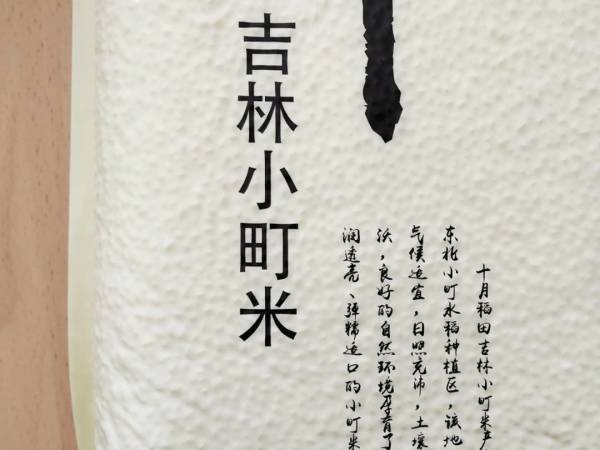 吉林小町米
十月稻田吉林小町米产
东北小町水稻种植区，该地
气候适宜，日照充沛，土壤
沃，良好的自然环境孕育了
润透亮、弹糯适口的小町米